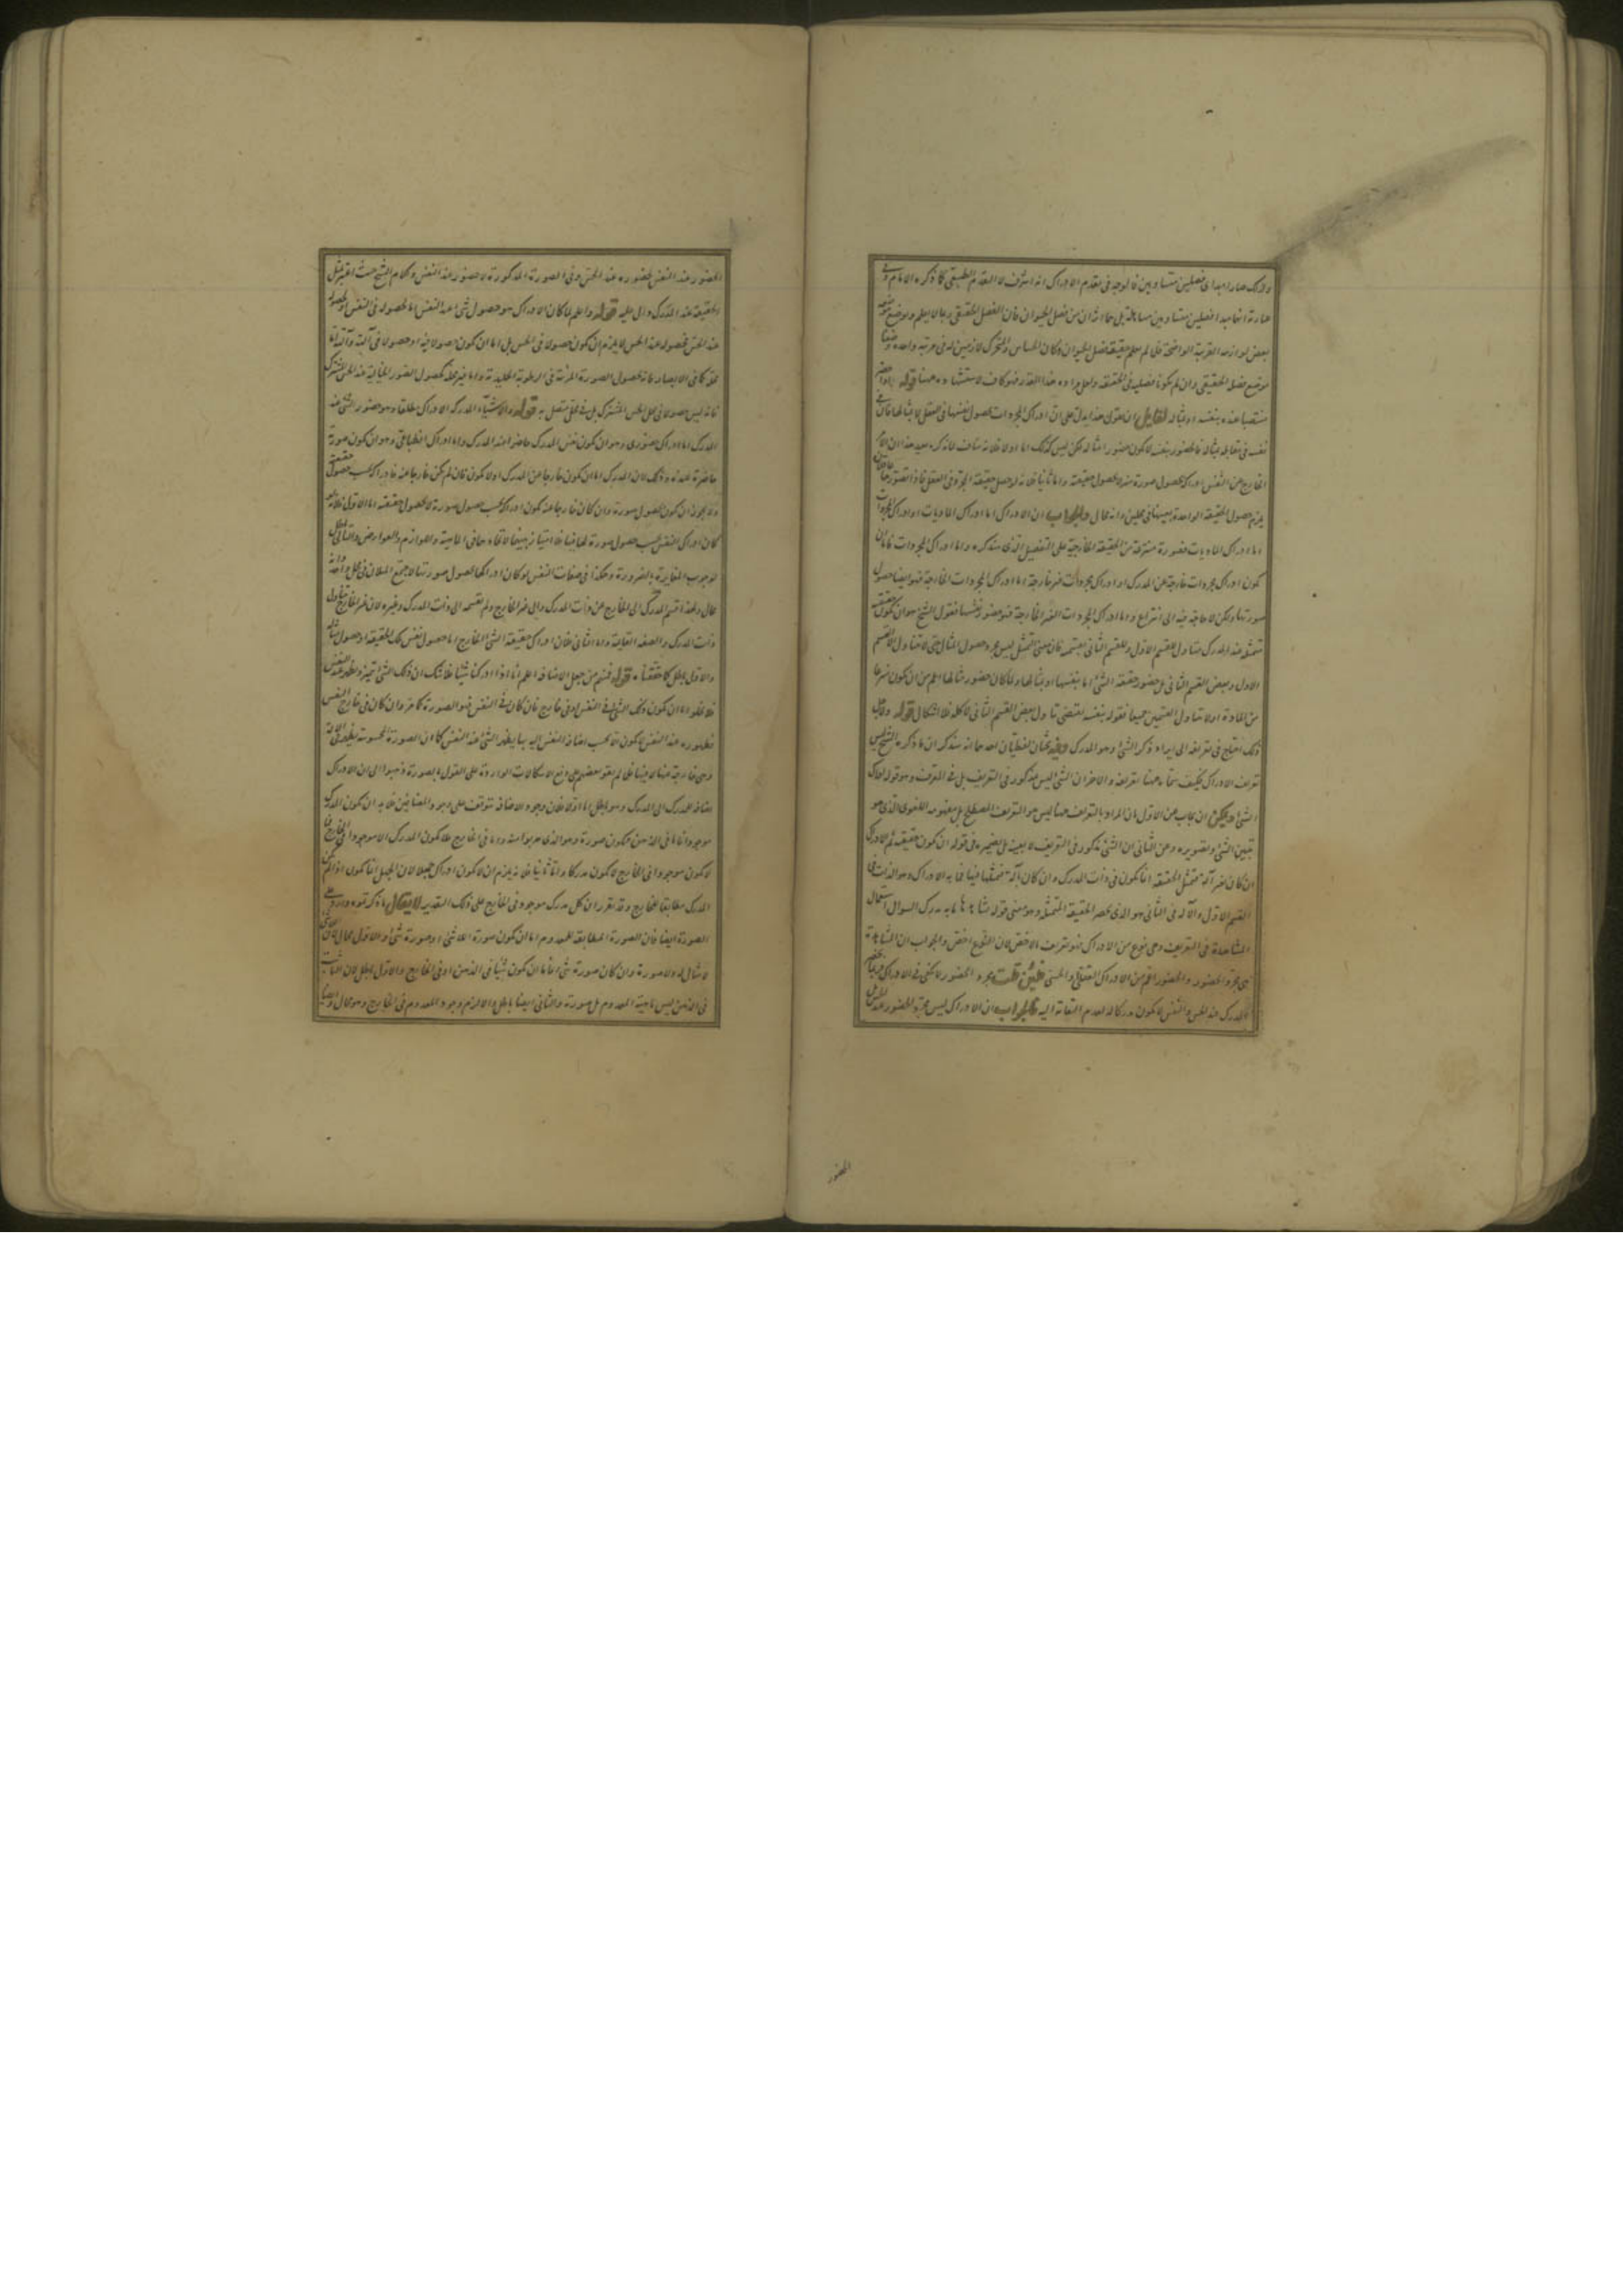 ولذلك صارا مبدأى فصلين متساويين فالوجه فى تقدم الادراك انه اشرف لا التقدم الطبيعى كما ذكره الامام وفى
عبارة انها مبدا فصلين متساويين مساهلة بل هما اثران من فصل الحيوان فان الفصل الحقيقى ربما لا يعلم ويوضع موضعه
بعض لوازمه القريبة الواضحة فلما لم يعلم حقيقة فصل الحيوان وكان الحساس والمتحرك لازمين له فى مرتبة واحدة وضعا
موضع فصله الحقيقى وان لم يكونا فصليه فى الحقيقة ولعل ايراده هذا القدر فهو كاف لاستشهاده ههنا قوله
منتصبا عنده بنفسه او بمثاله لقائل ان يقول هذا يدل على ان ادراك المجردات بحصول نفسها فى العقل لا بمثالها فان
نفسه فى مقابلة مثاله فالحضور بنفسه لا يكون حضور امثاله لكن ليس كذلك اما اولا فلانه مناف لما ذكره بعيد هذا ان الامر
الخارج عن النفس ادراكه بحصول صورة منه لا بحصول حقيقته واما ثانيا فلانه لو حصل حقيقة المجرد فى العقل فاذا تصوره عاقلان
يلزم حصول الحقيقة الواحدة بعينها فى محلين وانه محال والجواب ان الادراك اما ادراك الماديات او ادراك المجردات
اما ادراك الماديات فبصورة منتزعة من الحقيقة الخارجية على التفصيل الذى سنذكره واما ادراك المجردات فاما ان
يكون ادراك مجردات خارجة عن المدرك او ادراك مجردات غير خارجة اما ادراك المجردات الخارجة فهو ايضا حصول
صورتها ولكن لا حاجة فيه الى انتزاع واما ادراك المجردات الغير الخارجة فهو حضور نفسها فقول الشيخ هو ان يكون حقيقته
متمثلة عند المدرك متناول للقسم الاول وللقسم الثانى بقسميه فان معنى التمثل ليس مجرد حصول المثال حتى لا يتناول الا القسم
الاول وبعض القسم الثانى بل حضور حقيقة الشئ اما بنفسها او بمثالها ولما كان حضور مثالها اعم من ان يكون منتزعا
من المادة او لا تناول القسمين جميعا فقوله بنفسه يقتضى تناول بعض القسم الثانى لا كله فلا اشكال قوله ولاجل
ذلك احتاج فى تعريفه الى ايراد ذكر الشئ وهو المدرك وفيه بحثان لفظيان احدهما انه سنذكر ان ما ذكره الشيخ ليس
تعريف الادراك فكيف سماه ههنا تعريفه والاخر ان الشئ ليس بمذكور فى التعريف بل فى المعرف وهو قوله ادراك
الشئ ويمكن ان يجاب عن الاول بان المراد بالتعريف ههنا ليس هو التعريف المصطلح بل مفهومه اللغوى الذى هو
تبيين الشئ وتصويره وعن الثانى ان الشئ مذكور فى التعريف لا بعينه بل بضميره فى قوله ان يكون حقيقته ثم الادراك
ان كان بغير آلة فتمثل الحقيقة انما يكون فى ذات المدرك وان كان بآلة فتمثلها فيها فما به الادراك هو الذات فى
القسم الاول والآلة فى الثانى هو الذى يحصر الحقيقة المتمثلة وهو معنى قوله يشاهدها ما به يدرك السؤال استعمال
المشاهدة فى التعريف وهى نوع من الادراك فهو تعريف بالاخص لان النوع اخص والجواب ان المشاهدة
هى مجرد الحضور والحضور اعم من الادراك العقلى والحسى فلئن قلت مجرد الحضور لا يكفى فى الادراك
المدرك عند الحس والنفس لا يكون مدركا له لعدم التفاته اليه فالجواب ان الادراك ليس مجرد الحضور عند الحس بل
الحضور
الحضور عند النفس لحضوره عند الحس وفى الصورة المذكورة لا حضور عند النفس وكلام الشيخ حيث اعتبر تمثل
الحقيقة عند المدرك دال عليه قوله واعلم لما كان الادراك هو حصول شئ عند النفس اما لحصوله فى النفس او لحصوله
عند الحس فحصوله عند الحس لا يلزم ان يكون حصولا فى الحس بل اما ان يكون حصولا فيه او حصولا فى آلته وآلته اما
محله كما فى الابصار فانه بحصول الصورة المرئية فى الرطوبة الجليدية واما غير محله كحصول الصور الخيالية عند الحس المشترك
فانه ليس حصولا فى محل الحس المشترك بل فى محل متصل به قوله والاشياء المدركة الادراك مطلقا وهو حضور الشئ عند
المدرك اما ادراك حضورى وهو ان يكون نفس المدرك حاضرا عند المدرك واما ادراك انطباعى وهو ان يكون صورة
حاضرة عنده وذلك لان المدرك اما ان يكون خارجا عن المدرك او لا يكون فان لم يكن خارجا عنه فادراكه بحسب حصول حقيقته
ولا يجوز ان يكون بحصول صورة وان كان خارجا عنه يكون ادراكه بحسب حصول صورة لا بحصول حقيقته اما الاول فلانه لو
كان ادراك النفس بحسب حصول صورة لها فيها فلا امتياز بينهما لاتحادهما فى الماهية واللوازم والعوارض والتالى باطل
لوجوب المغايرة بالضرورة وهكذا فى صفات النفس لو كان ادراكها لحصول صورتها لاجتمع المثلان فى محل واحد وانه
محال ولهذا قسم المدرك الى الخارج عن ذات المدرك والى غير الخارج ولم يقسمه الى ذات المدرك وغيره لان غير الخارج يتناول
ذات المدرك والصفة القائمة واما الثانى فلان ادراك حقيقة الشئ الخارج اما حصول نفس تلك الحقيقة او حصول مثاله
والاول باطل كما حققناه قوله فمنهم من جعل الاضافة اعلم انا اذا ادركنا شيئا فلا شك ان ذلك الشئ تميز وظهر عند النفس
فلا يخلو اما ان يكون ذلك الشئ فى النفس او فى خارج فان كان فى النفس فهو الصورة كما مر وان كان فى خارج النفس
فظهوره عند النفس لا يكون الا بحسب اضافة النفس اليه بها يظهر الشئ عند النفس كما ان الصورة المحسوسة يظهر فى المرآة
وهى خارجة عنها لا فيها فلما لم يقو بعضهم على دفع الاشكالات الواردة على القول بالصورة ذهبوا الى ان الادراك
اضافة المدرك الى المدرك وهو باطل اما اولا فلان وجود الاضافة يتوقف على وجود المتضايفين فلا بد ان يكون المدرك
موجودا فاما فى الذهن فيكون صورة وهو الذى هربوا منه واما فى الخارج فلا يكون المدرك الا موجودا فى الخارج فما
لا يكون موجودا فى الخارج لا يكون مدركا واما ثانيا فلانه يلزم ان لا يكون ادراك جهلا لان الجهل انما يكون اذا لم يكن
المدرك مطابقا للخارج وقد تقرر ان كل مدرك موجود فى الخارج على ذلك التقدير لا يقال ما ذكرتموه وارد على
الصورة ايضا فان الصورة المطابقة للمعدوم اما ان يكون صورة اللاشئ او صورة شئ والاول محال فان اللاشئ
لا مثال له ولا صورة وان كان صورة شئ فاما ان يكون شيئا فى الذهن او فى الخارج والاول باطل لان الثابت
فى الذهن ليس ماهية المعدوم بل صورته والثانى ايضا باطل والا لزم وجود المعدوم فى الخارج وهو محال وايضا